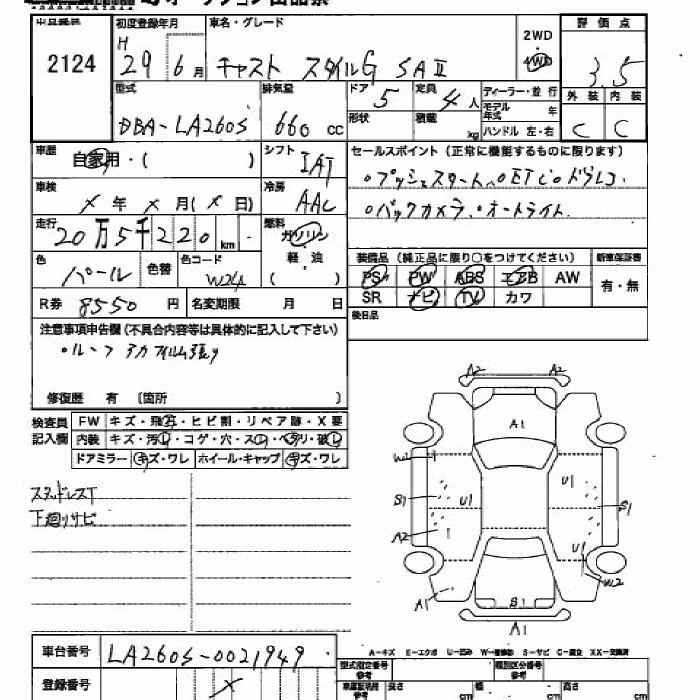 初度登録年月 車名・グレード 2WD 4WD 評価点
2124 H 29 6月 キャスト スタイルG SAⅡ 3.5
型式 排気量 ドア 5 定員 4人 ディーラー・並行 外装 内装
DBA-LA260S 660 cc 形状 積載 kg モデル年式 年 C C
ハンドル 左・右
車歴 自家用・( ) シフト IAT セールスポイント (正常に機能するものに限ります)
車検 X年 X月(X日) 冷房 AAC ○プッシュスタート ○ETC ○ドラレコ
走行 20万5千220km 燃料 ガソリン 軽・油 ( ) ○バックカメラ ○オートライト
色 パール 色替 色コード W24 装備品 (純正品に限り○をつけてください) 新車保証書
PS PW ABS エアB AW 有・無
R券 8550円 名変期限 月 日 SR ナビ TV カワ
注意事項申告欄 (不具合内容等は具体的に記入して下さい) 後日品
修復歴 有 〔箇所 〕
検査員記入欄 FW キズ・飛石・ヒビ割・リペア跡・X要
内装 キズ・汚れ・コゲ・穴・スレ・ヘタリ・破れ
ドアミラー キズ・ワレ ホイール・キャップ キズ・ワレ
スタッドレスT
下廻りサビ
A2 A2
A1
W2 U1
S1 U1 S1
A2 U1
W2
A1 S1
A1
A-キズ E-エクボ U-凹み W-補修跡 S-サビ C-腐食 XX-交換済
車台番号 LA260S-0021949
登録番号 X
型式指定番号 参考 類別区分番号 参考
長さ cm 幅 cm 高さ cm